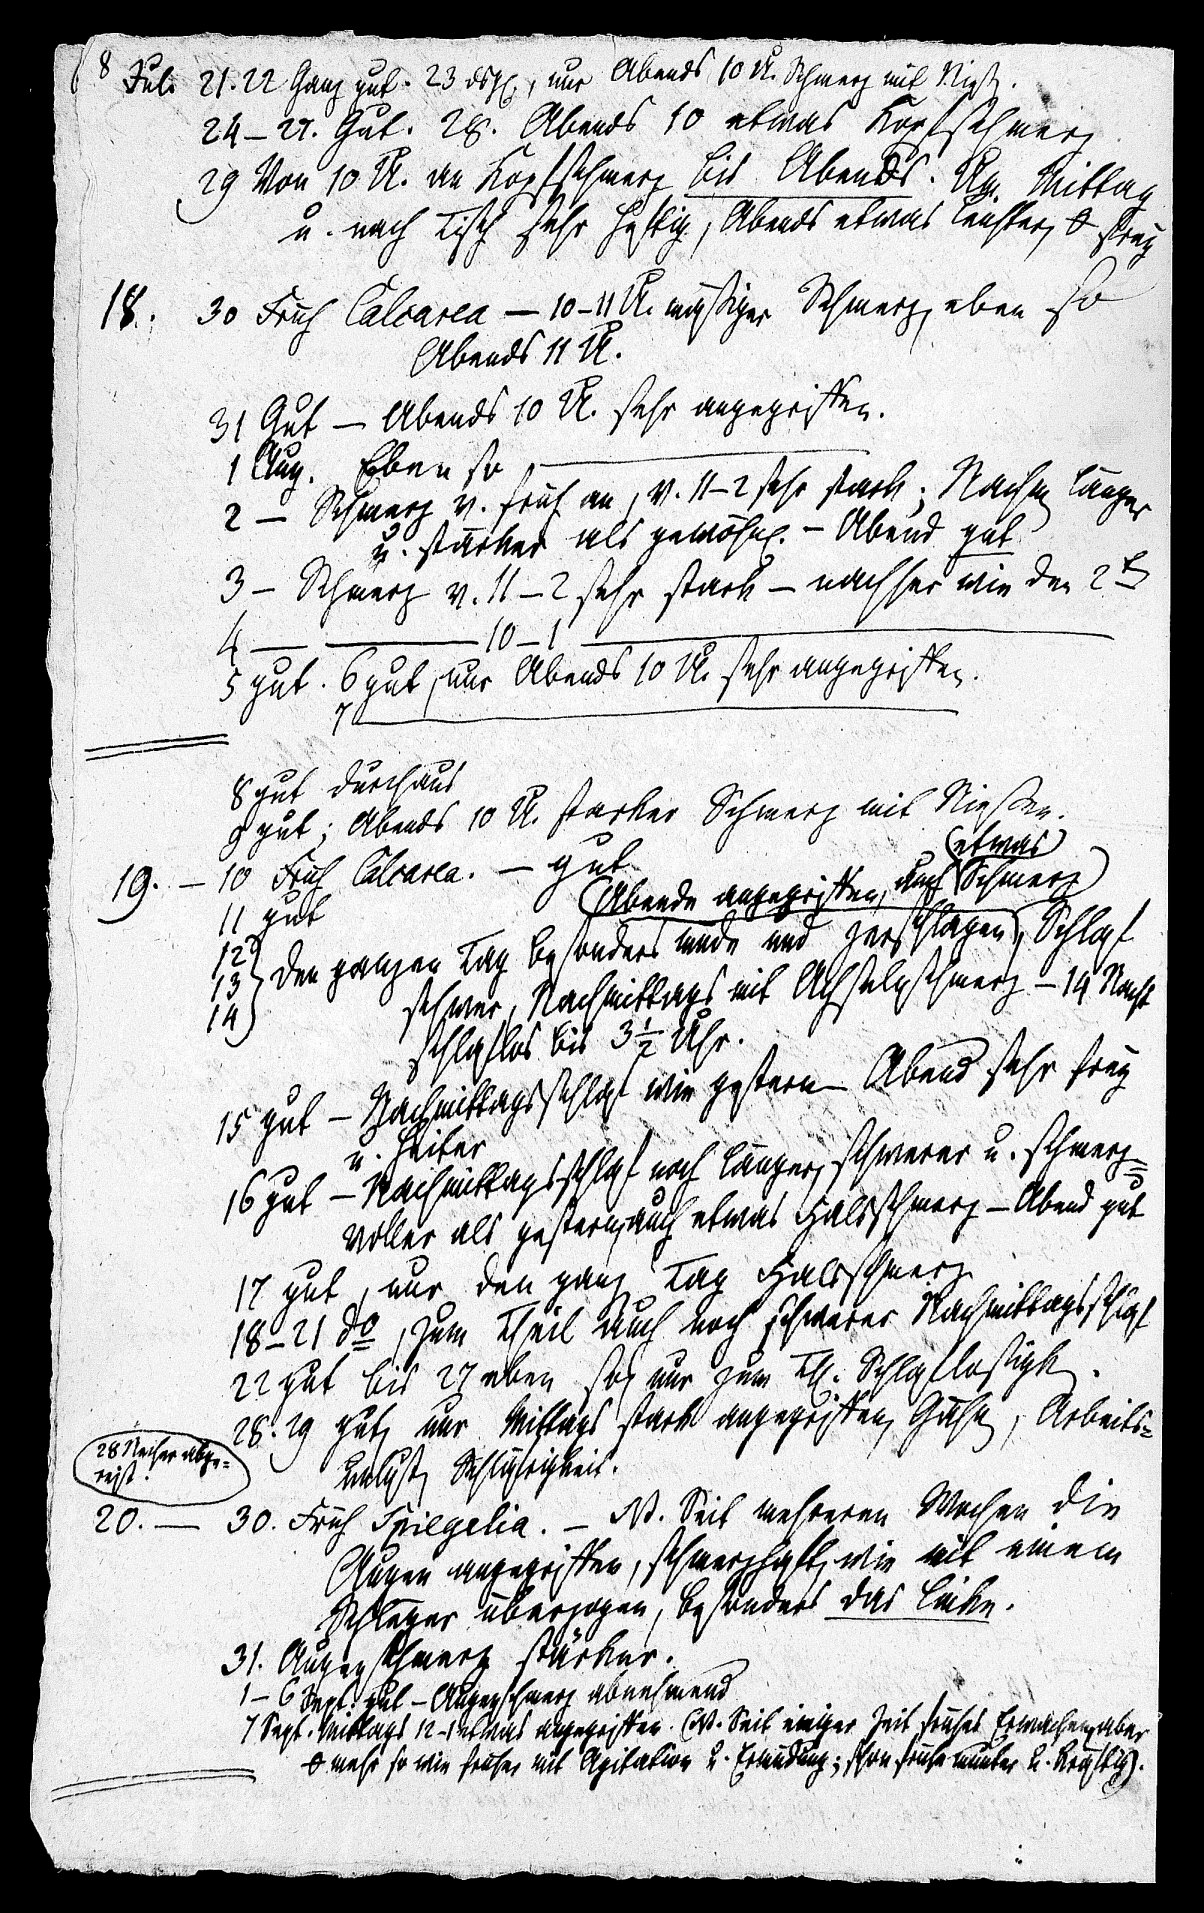 8
Jul. 21. 22 Ganz gut. 23 dsgl., nur Abends 10 U. Schmerz mit Nieß.
24–27. Gut. 28. Abends 10 etwas Kopfschmerz
29 Von 10 U. an Kopfschmerz bis Abends. Um Mittag
u. nach Tisch sehr heftig, Abends etwas leichter,
18. 30 Früh Calcarea — 10–11 U. mäßiger Schmerz, eben so
Abends 11 U.
31 Gut — Abends 10 U. sehr angegriffen.
1 Aug. Eben so
2 — Schmerz v. früh an, v. 11–2 sehr stark; Nachm länger
u. stärker als gewöhnl. – Abend gut
3 – Schmerz v. 11–2 sehr stark – nachher wie den 2
4 — — 10–1 —
5 gut. 6 gut, nur Abends 10 U. sehr angegriffen.
7 —
8 gut durchaus
9 gut; Abends 10 U. starker Schmerz mit Nießen.
19. – 10 Früh Calcarea. – gut
11 gut (Abends angegriffen, auch (etwas) Schmerz)
12
13 } den ganzen Tag besonders müde und zerschlagen, Schlaf
14
schwer, Nachmittags mit Achselschmerz – 14 Nacht
schlaflos bis 3 1/2 Uhr.
15 gut – Nachmittagsschlaf wie gestern – Abend sehr frey
u. heiter
16 gut – Nachmittagsschlaf noch länger, schwerer u. schmerz=
voller als gestern, auch etwas Halsschmerz – Abend gut
17 gut, nur den ganz Tag Halsschmerz
18–21 do, zum Theil auch noch schwerer Nachmittagsschlaf
22 gut bis 27 eben so, nur zum Th. Schlaflosigk.
28. 29 gut, nur Mittags stark angegriffen, Gähn, Arbeits=
unlust, Schläfrigkeit.
28 abge=
reist.
20. — 30. Früh Spiegelia. – N. Seit mehreren Wochen die
Augen angegriffen, schmerzhaft, wie mit einem
Schleyer überzogen, besonders das linke.
31. Augenschmerz stärker.
1–6 Sept. gut – Augenschmerz abnehmend
7 Sept. Mittags 12–1 etwas angegriffen. (N. Seit einiger Zeit frühes Erwachen, aber
mehr so wie früher mit Agitation u. Ermüdung; schon frühe munter u.